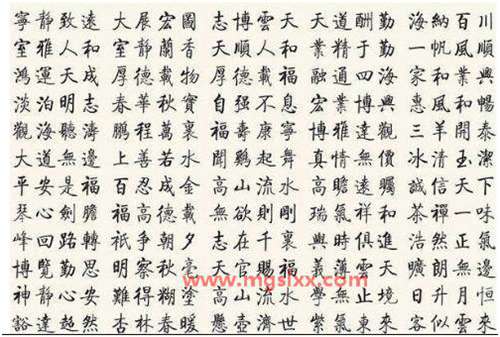 寧靜致遠 大展宏圖 志博雲天 天道酬勤 海納百川
室雅人和 室靜蘭香 大順人和 業精于勤 一帆風順
鴻運天成 厚德載物 厚德載福 融通四海 家和業興
淡泊明志 春華秋實 自强不息 宏業 惠風和暢
觀海聽濤 鵬程萬裏 福壽康寧 博雅達觀 三羊開泰
大道無邊 上善若水 聞鷄起舞 真情無價 冰清玉潔
平安是福 百忍成金 高山流水 高瞻遠矚 誠信天下
琴心劍膽 福高德載 無欲則剛 瑞氣祥和 茶禪一味
峰回路轉 祇争朝夕 志在千裏 與時俱進 浩然正氣
博覽勤思 明察秋毫 天官賜福 義薄雲天 曠朗無邊
神靜心安 難得糊塗 高山流水 學無止境 日升月恒
豁達超然 杏林春暖 懸壺濟世 紫氣東來 客似雲來
www.mgslxx.com